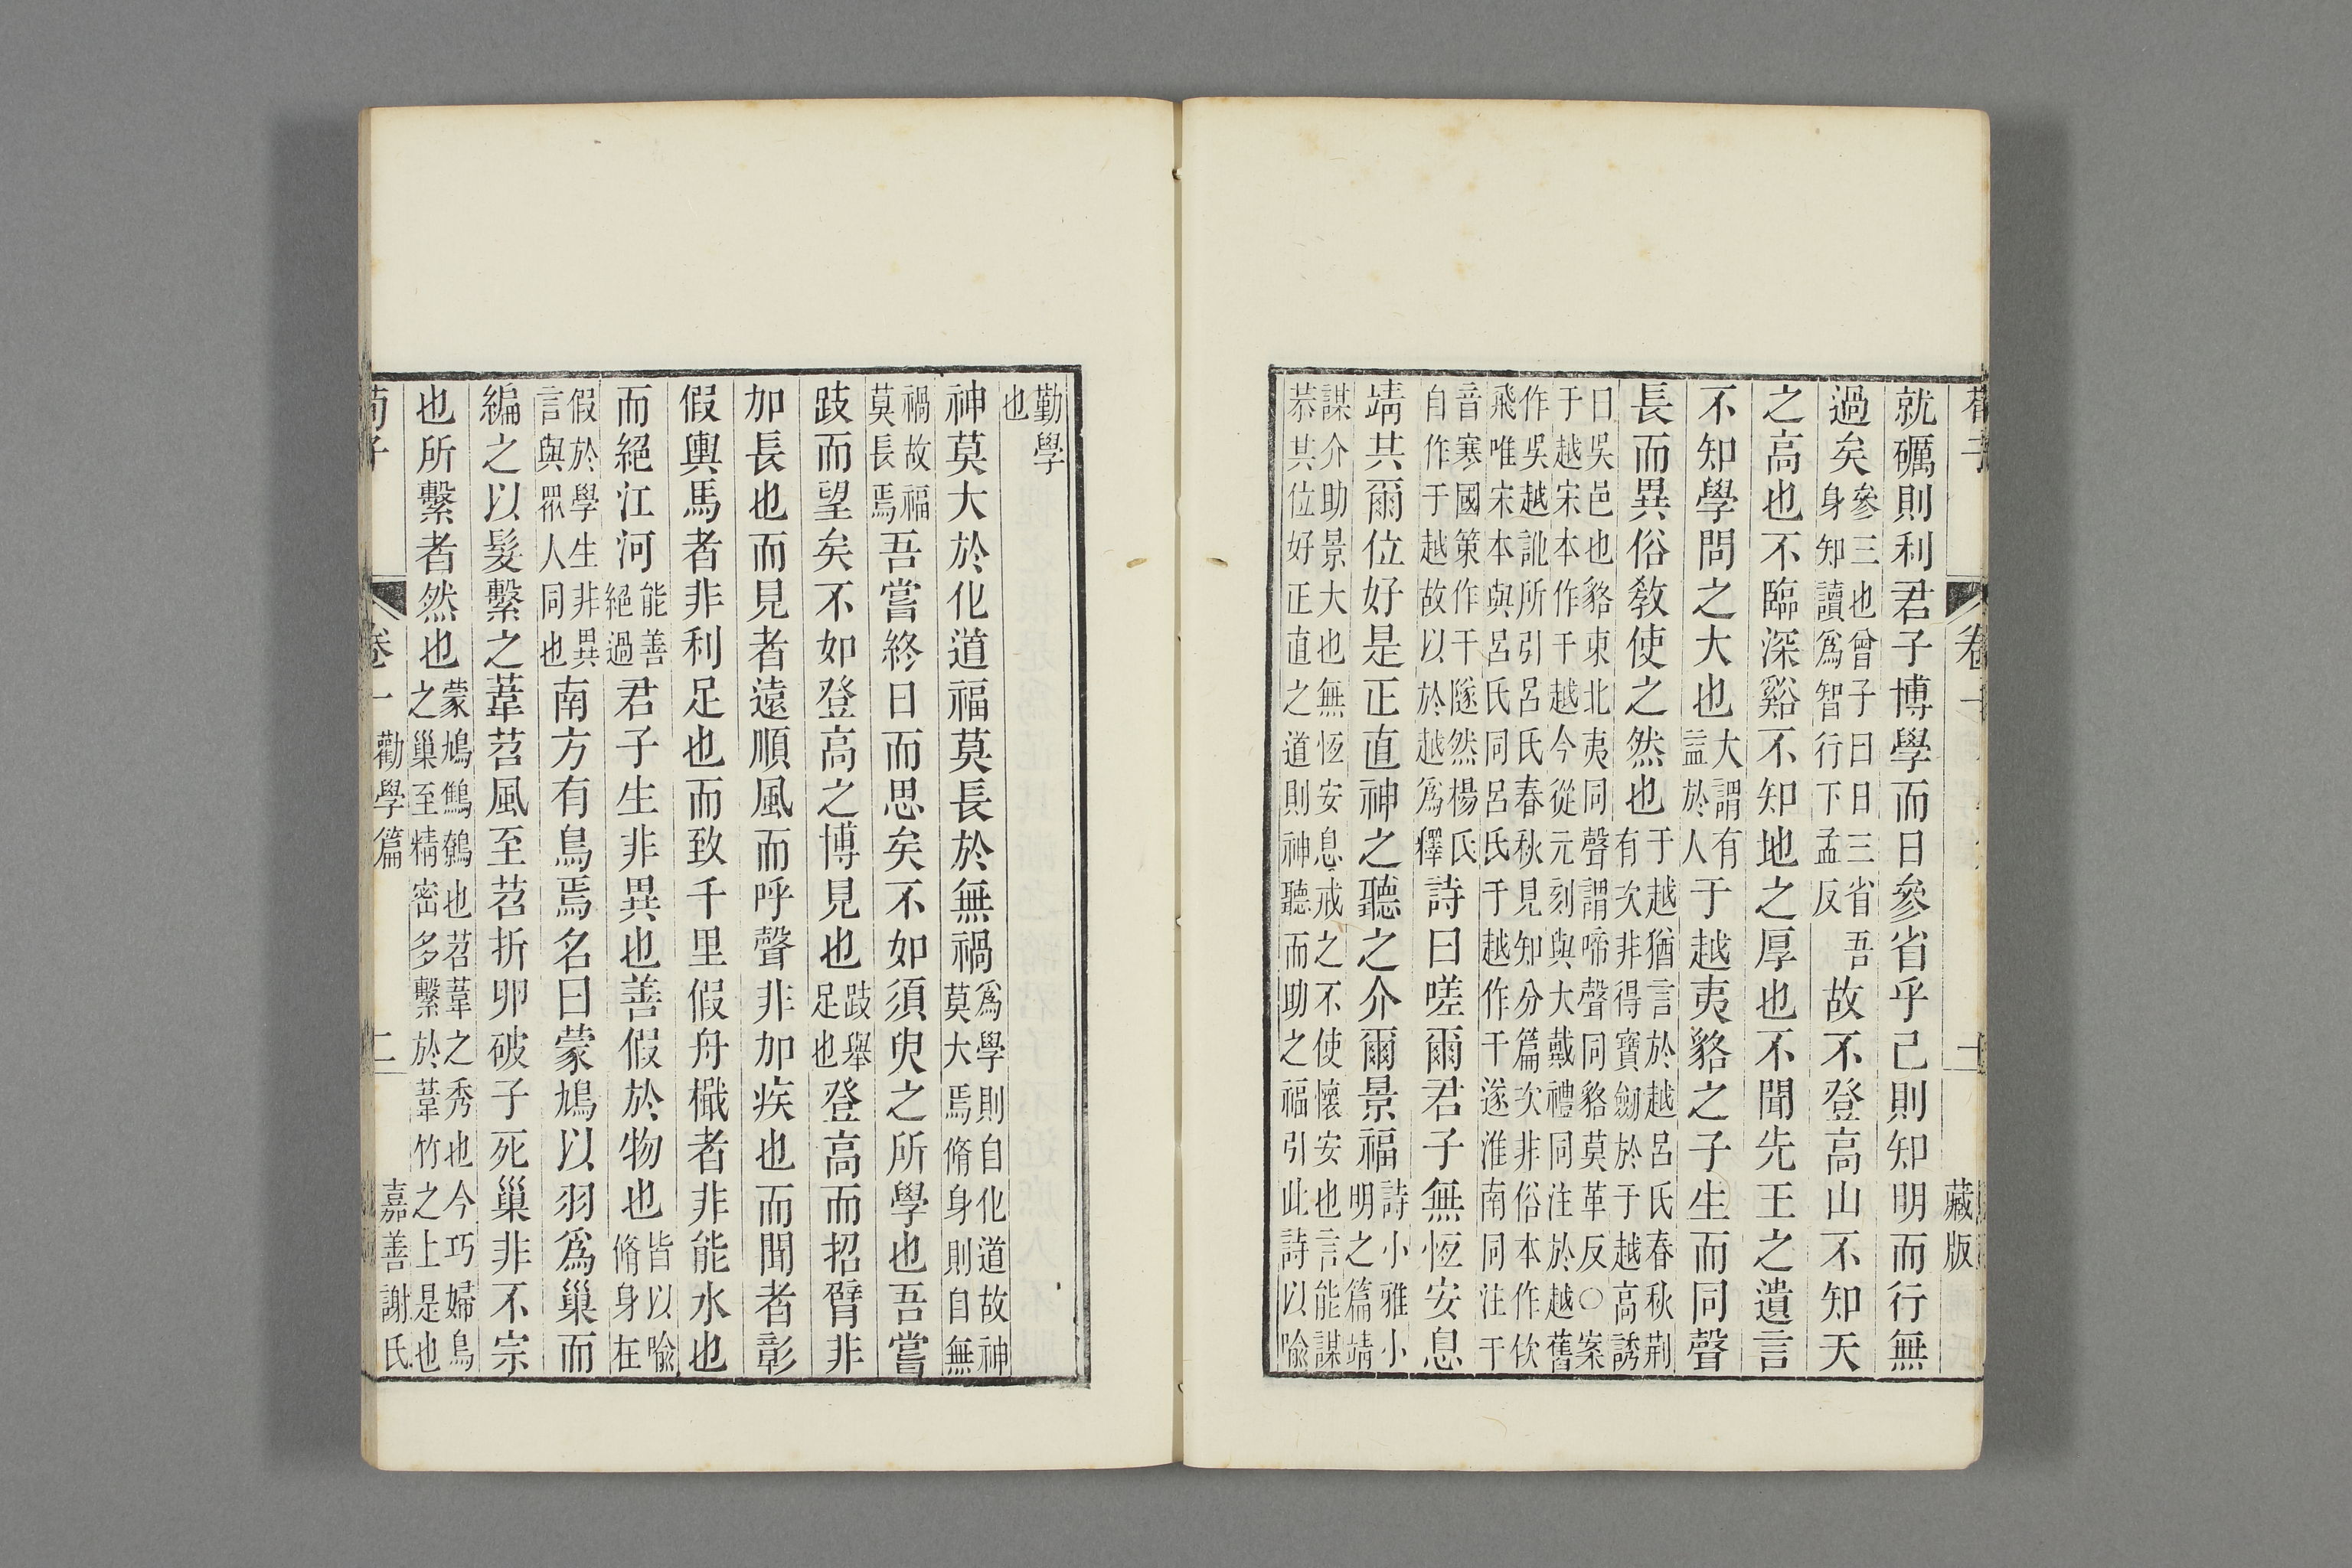 荀子
卷一
藏版
就礪則利君子博學而日參省乎己則知明而行無
過矣參三也曾子曰日三省吾身知讀為智行下孟反故不登高山不知天
之高也不臨深谿不知地之厚也不聞先王之遺言
不知學問之大也大謂有益於人于越夷貉之子生而同聲
長而異俗敎使之然也于越猶言於越呂氏春秋荆有次非得寶劒於于越高誘
曰吳邑也貉東北夷同聲謂啼聲同貉莫革反○案于越宋本作干越今從元刻與大戴禮同注於越舊
作吳越訛所引呂氏春秋見知分篇次非俗本作佽飛唯宋本與呂氏同呂氏于越作干遂淮南同注干
音寒國策作干隧然楊氏自作于越故以於越爲釋詩曰嗟爾君子無恆安息
靖共爾位好是正直神之聽之介爾景福詩小雅小明之篇靖
謀介助景大也無恆安息戒之不使懷安也言能謀恭其位好正直之道則神聽而助之福引此詩以喩
勤學也
神莫大於化道福莫長於無禍爲學則自化道故神莫大焉脩身則自無
禍故福莫長焉吾嘗終日而思矣不如須臾之所學也吾嘗
跂而望矣不如登高之博見也跂舉足也登高而招臂非
加長也而見者遠順風而呼聲非加疾也而聞者彰
假輿馬者非利足也而致千里假舟檝者非能水也
而絕江河能善絕過君子生非異也善假於物也皆以喩脩身在
假於學生非異言與眾人同也南方有鳥焉名曰蒙鳩以羽爲巢而
編之以髮繫之葦苕風至苕折卵破子死巢非不宗
也所繫者然也蒙鳩鷦鷯也苕葦之秀也今巧婦鳥之巢至精密多繫於葦竹之上是也
荀子
卷一
勸學篇
二
嘉善謝氏